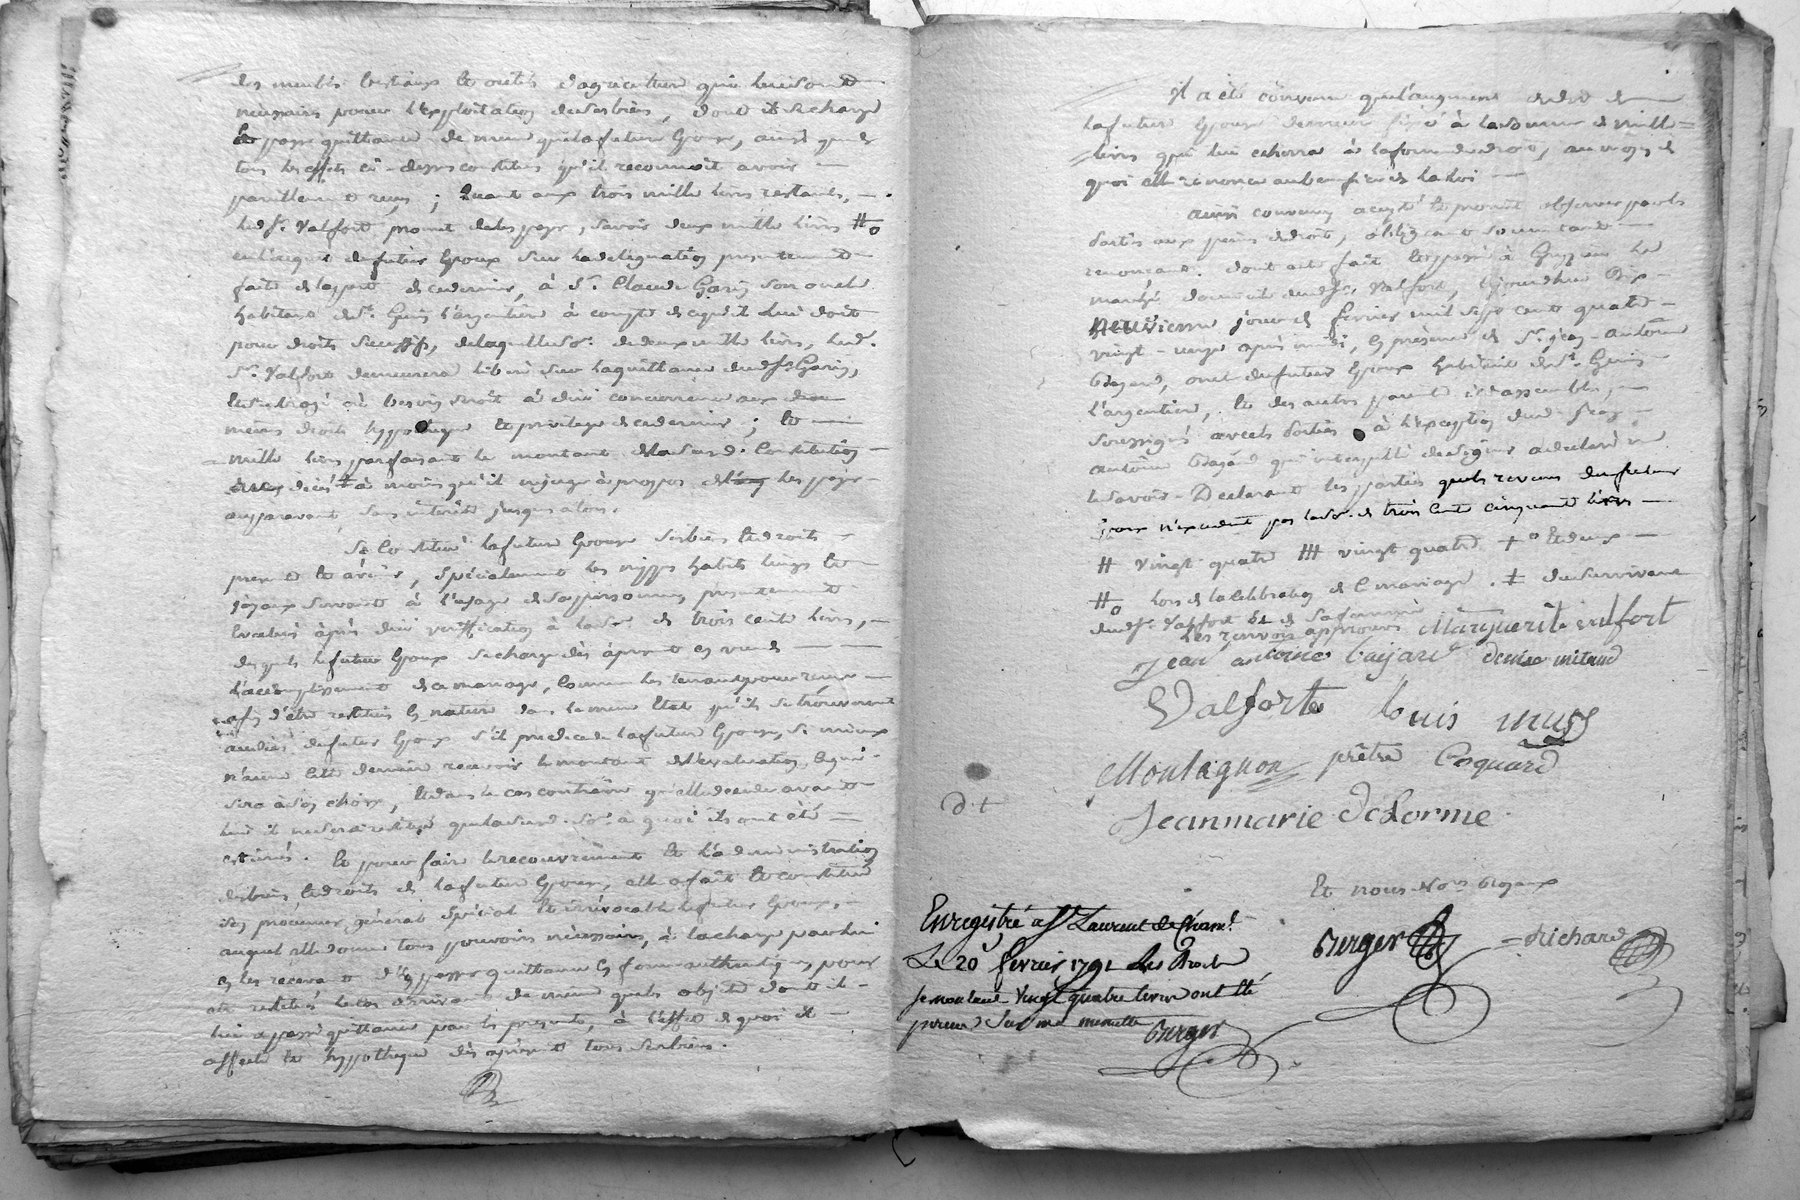 des meubles bestiaux et outils d'agriculture qui lui sont
nécessaires pour l'exploitation de ses biens, dont il se charge
et passe quittance de même que la future Epouse, ainsi que de
tous les effets cy-dessus constitués qu'il reconnoit avoir
pareillement reçu ; Quant aux trois mille livres restants,
led. Sr. Valfort promet de les payer, savoir deux mille livres #o
du futur Epoux sur la délégation presentement
faite de la part de ce dernier, à Sr. Claude Garin son oncle
habitant de St. Genis l'argentière à compte de ce qu'il lui doit
pour droits successifs, de laquelle so. de deux mille livres, led.
Sr. Valfort demeurera libéré sur la quittance dud. Sr. Garin,
droit à due concurrence aux
mêmes droits hypotheque et privilege de ce dernier ; et
mille livres parfaisant le montant de la susd. Constitution
à moins qu'il ne juge à propos de les payer
auparavant, sans interêts jusques alors.
Se Constitue la future Epouse ses biens et droits
presents et à venir, spécialement les nippes habits linges et
joyaux servant à l'usage de sa personne, presentement
évalués après due vérification à la so. de trois cents livres,
desquels le futur Epoux se charge dès à present en vue de
l'accomplissement de ce mariage, comme les tenant pour reçus
afin d'être restitués en nature dans le même Etat qu'ils se trouveront
au décès du futur Epoux s'il prédécede la future Epouse, si mieux
n'aime cette derniere recevoir le montant de l'évaluation, ce qui
sera à son choix, et dans le cas contraire qu'elle décede avant
lui il ne sera restitué que la susd. so. à quoi ils ont été
estimés. Et pour faire le recouvrement et l'administration
des biens et droits de la future Epouse, elle a fait et constitué
son procureur général spécial et irrévocable le futur Epoux,
auquel elle donne tous pouvoirs nécessaires, à la charge par lui
en les recevant d'en passer quittance en forme authentique pour
etre restitués le cas arrivant de même que les objets dont il
lui a passé quittance par les presentes, à l'effet de quoi il
affecte et hypotheque dès à present tous ses biens.
Il a été convenu que l'augment de dot de
la future Epouse demeure fixé à la somme de mille
livres qui lui echerra à la forme du droit, au moyen de
quoi elle renonce au benefice de la loi
Ainsi convenu accepté et promit observer par les
parties aux peines de droit, obligeant soumettant
renonçant. Dont acte fait et passé à Grezieu le
marché domicile dud. Sr. Valfort, ce jourdhui Dix
neuvieme jour de fevrier mil sept cent quatre
vingt-onze après midi, en présence de Sr. Jean-Antoine
Bajard, oncle du futur Epoux habitant de St. Genis
l'argentière, et des autres parents icy assemblés,
soussignés avec les parties à l'exception dud. Jean
Antoine Bajard qui interpellé de signer a déclaré ne
le savoir - Declarant les parties que les revenus du futur
Epoux n'excedent pas la so. de trois Cent cinquante livres
# vingt quatre ## vingt quatre +o et deux
#o lors de la Célébration de ce mariage. ‡ du survivant
dud. Sr. Valfort et de sa femme
Les renvois approuvés Marguerite valfort
Jean antoine bajard denise mitaud
Valforte Louis
Montagnon prêtre Coquard
Jeanmarie Delorme
dt
Et nous Nores Royaux
Berger Richard
Enregistré a St Laurent de Cham.t
Le 20 fevrier 1791 les Droits
se montant vingt quatre livres ont été
perçus sur ma minutte Berger